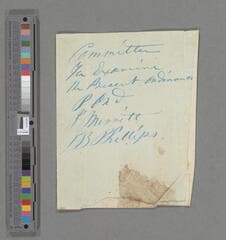 Committee
to Examine
the Present ordinances
P
P Merritt
B Phillips